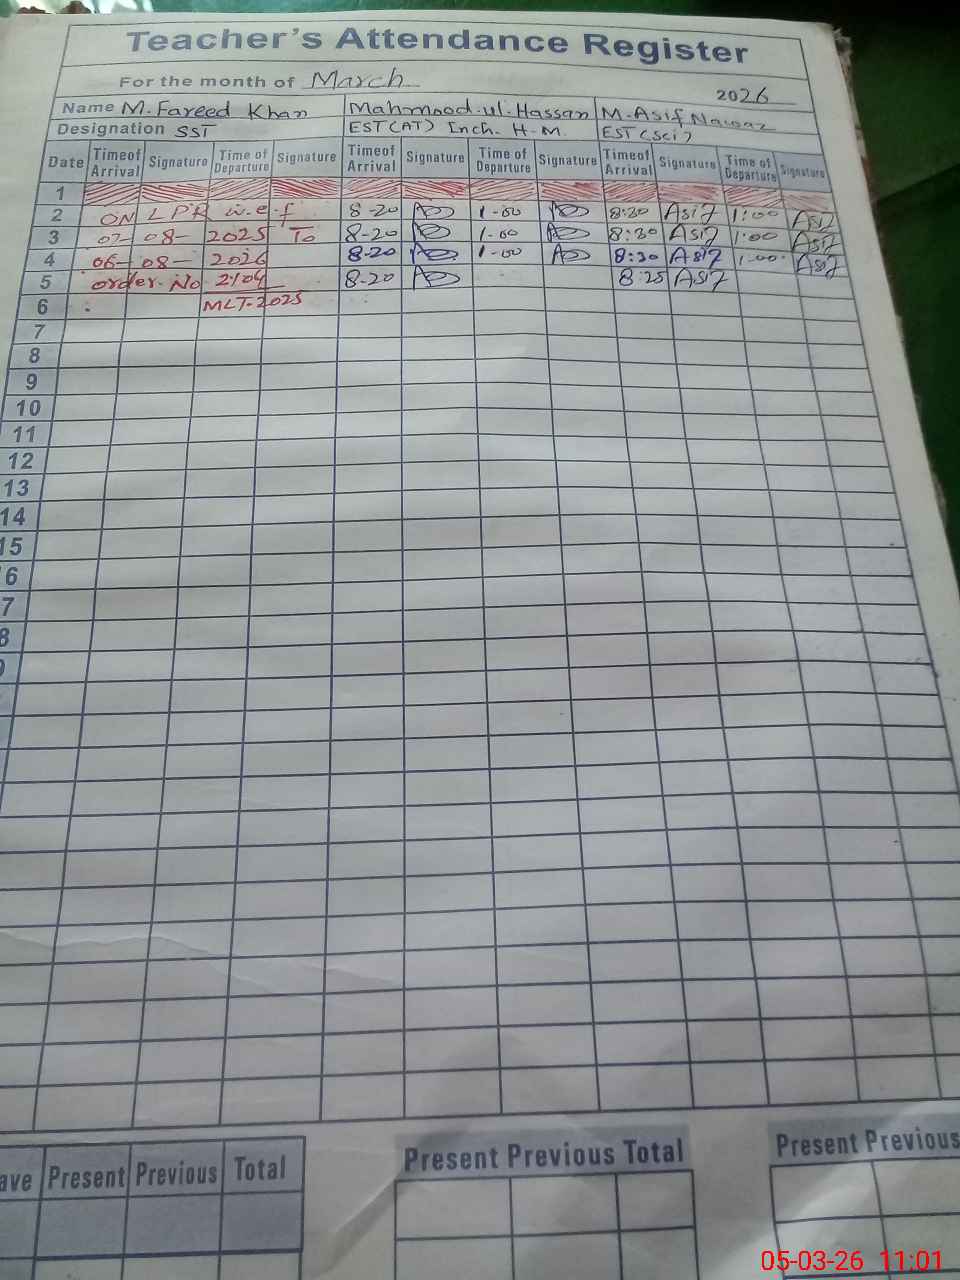 Teacher's Attendance Register
For the month of March 2026
Name M. Fareed Khan Mahmood-ul-Hassan M. Asif Nawaz
Designation SST EST(AT) Inch. H.M. EST(Sci)
Date Timeof Arrival Signature Time of Departure Signature Timeof Arrival Signature Time of Departure Signature Timeof Arrival Signature Time of Departure Signature
1
2 ON LPR w.e.f 8-20 1-00 8:30 Asif 1:00 Asif
3 07-08-2025 To 8-20 1-00 8:30 Asif 1:00 Asif
4 06-08-2026 8-20 1-00 8:30 Asif 1:00 Asif
5 order No 2104 8-20 8:25 Asif
6 MLT-2025
7
8
9
10
11
12
13
14
15
6
7
8
ave Present Previous Total Present Previous Total Present Previous
05-03-26 11:01